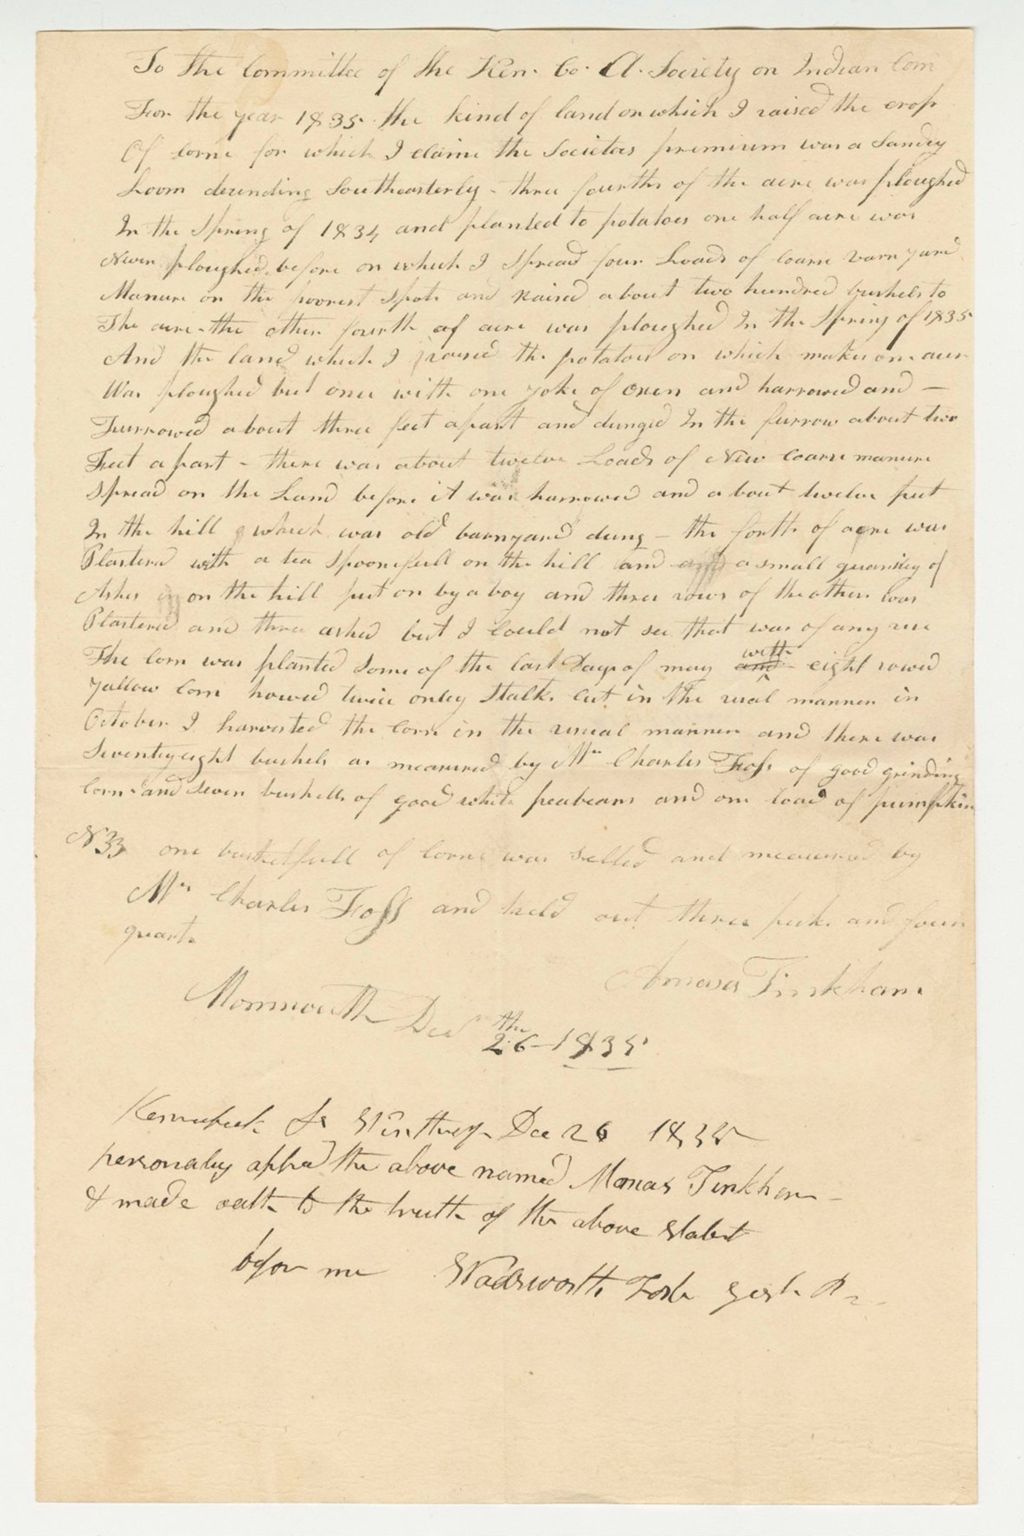 To the Committee of the Ken. Co. A. Society on Indian Corn
For the year 1835 the kind of land on which I raised the crop
Of corne for which I claime the Societes premium was a Sandy
Loom decending Southeasterly - three fourths of the acre was ploughed
In the Spring of 1834 and planted to potatoes one half acre was
Never ploughed before on which I Spread four Loads of coarse barn yard
Manure on the poorest Spots and Raised about two hundred bushels to
The acre - the other fourth of acre was ploughed In the Spring of 1835
And the land which I raised the potatoes on which makes one acre
Was ploughed but once with one yoke of oxen and harrowed and -
Furrowed about three feet apart and dunged In the furrow about two
Feet apart - there was about twelve Loads of New Coarse manure
Spread on the Land before it was harrowed and about twelve put
In the hill which was old barnyard dung - the forth of acre was
Plastered with a tea Spoonefull on the hill and a small quantity of
Ashes on the hill put on by a boy and three rows of the others was
Plastered and three ashed but I Could not see that was of any use
The Corn was planted Some of the last Days of may and with eight rowed
Yallow Corn howed twice onley Stalks Cut in the usal manner in
October I harvested the Corn in the usual manner and there was
Seventyeight bushels as measured by Mr Charles Foss of good grinding
Corn and Seven bushells of good white peabeans and one load of pumpkin
N 33 one basketfull of Corne was Selled and measured by
Mr Charles Foss and held out three pecks and four
quarts
Amasa Tinkham
Monmouth Decr 26th 1835
Kennebeck Ss Winthrop Dec 26 1835
personaly apped the above named Tinkham -
& made oath to the truth of the above Statet
before me Wadsworth Just. Pe